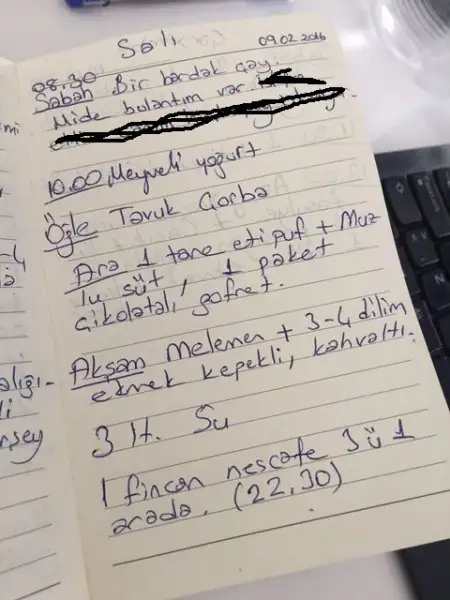 Salı 09.02.2016
08.30
Sabah Bir bardak çay.
Mide bulantım var.
10.00 Meyveli yoğurt
Öğle Tavuk Çorba
Ara 1 tane eti puf + Muz
lu süt, 1 paket
çikolatalı, gofret.
Akşam Melemen + 3-4 dilim
ekmek kepekli, kahvaltı.
3 lt. Su
1 fincan nescafe 3 ü 1
arada. (22,30)
mi
alığı-
li
rşey